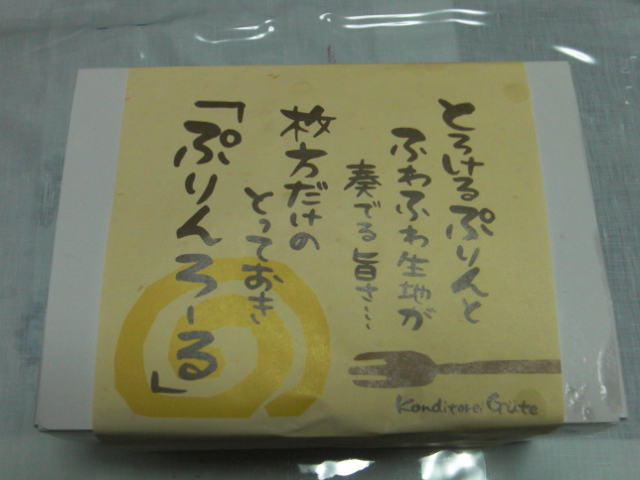 とろけるぷりんと
ふわふわ生地が
奏でる旨さ…
枚方だけの
とっておき
「ぷりんろーる」
Konditorei Güte